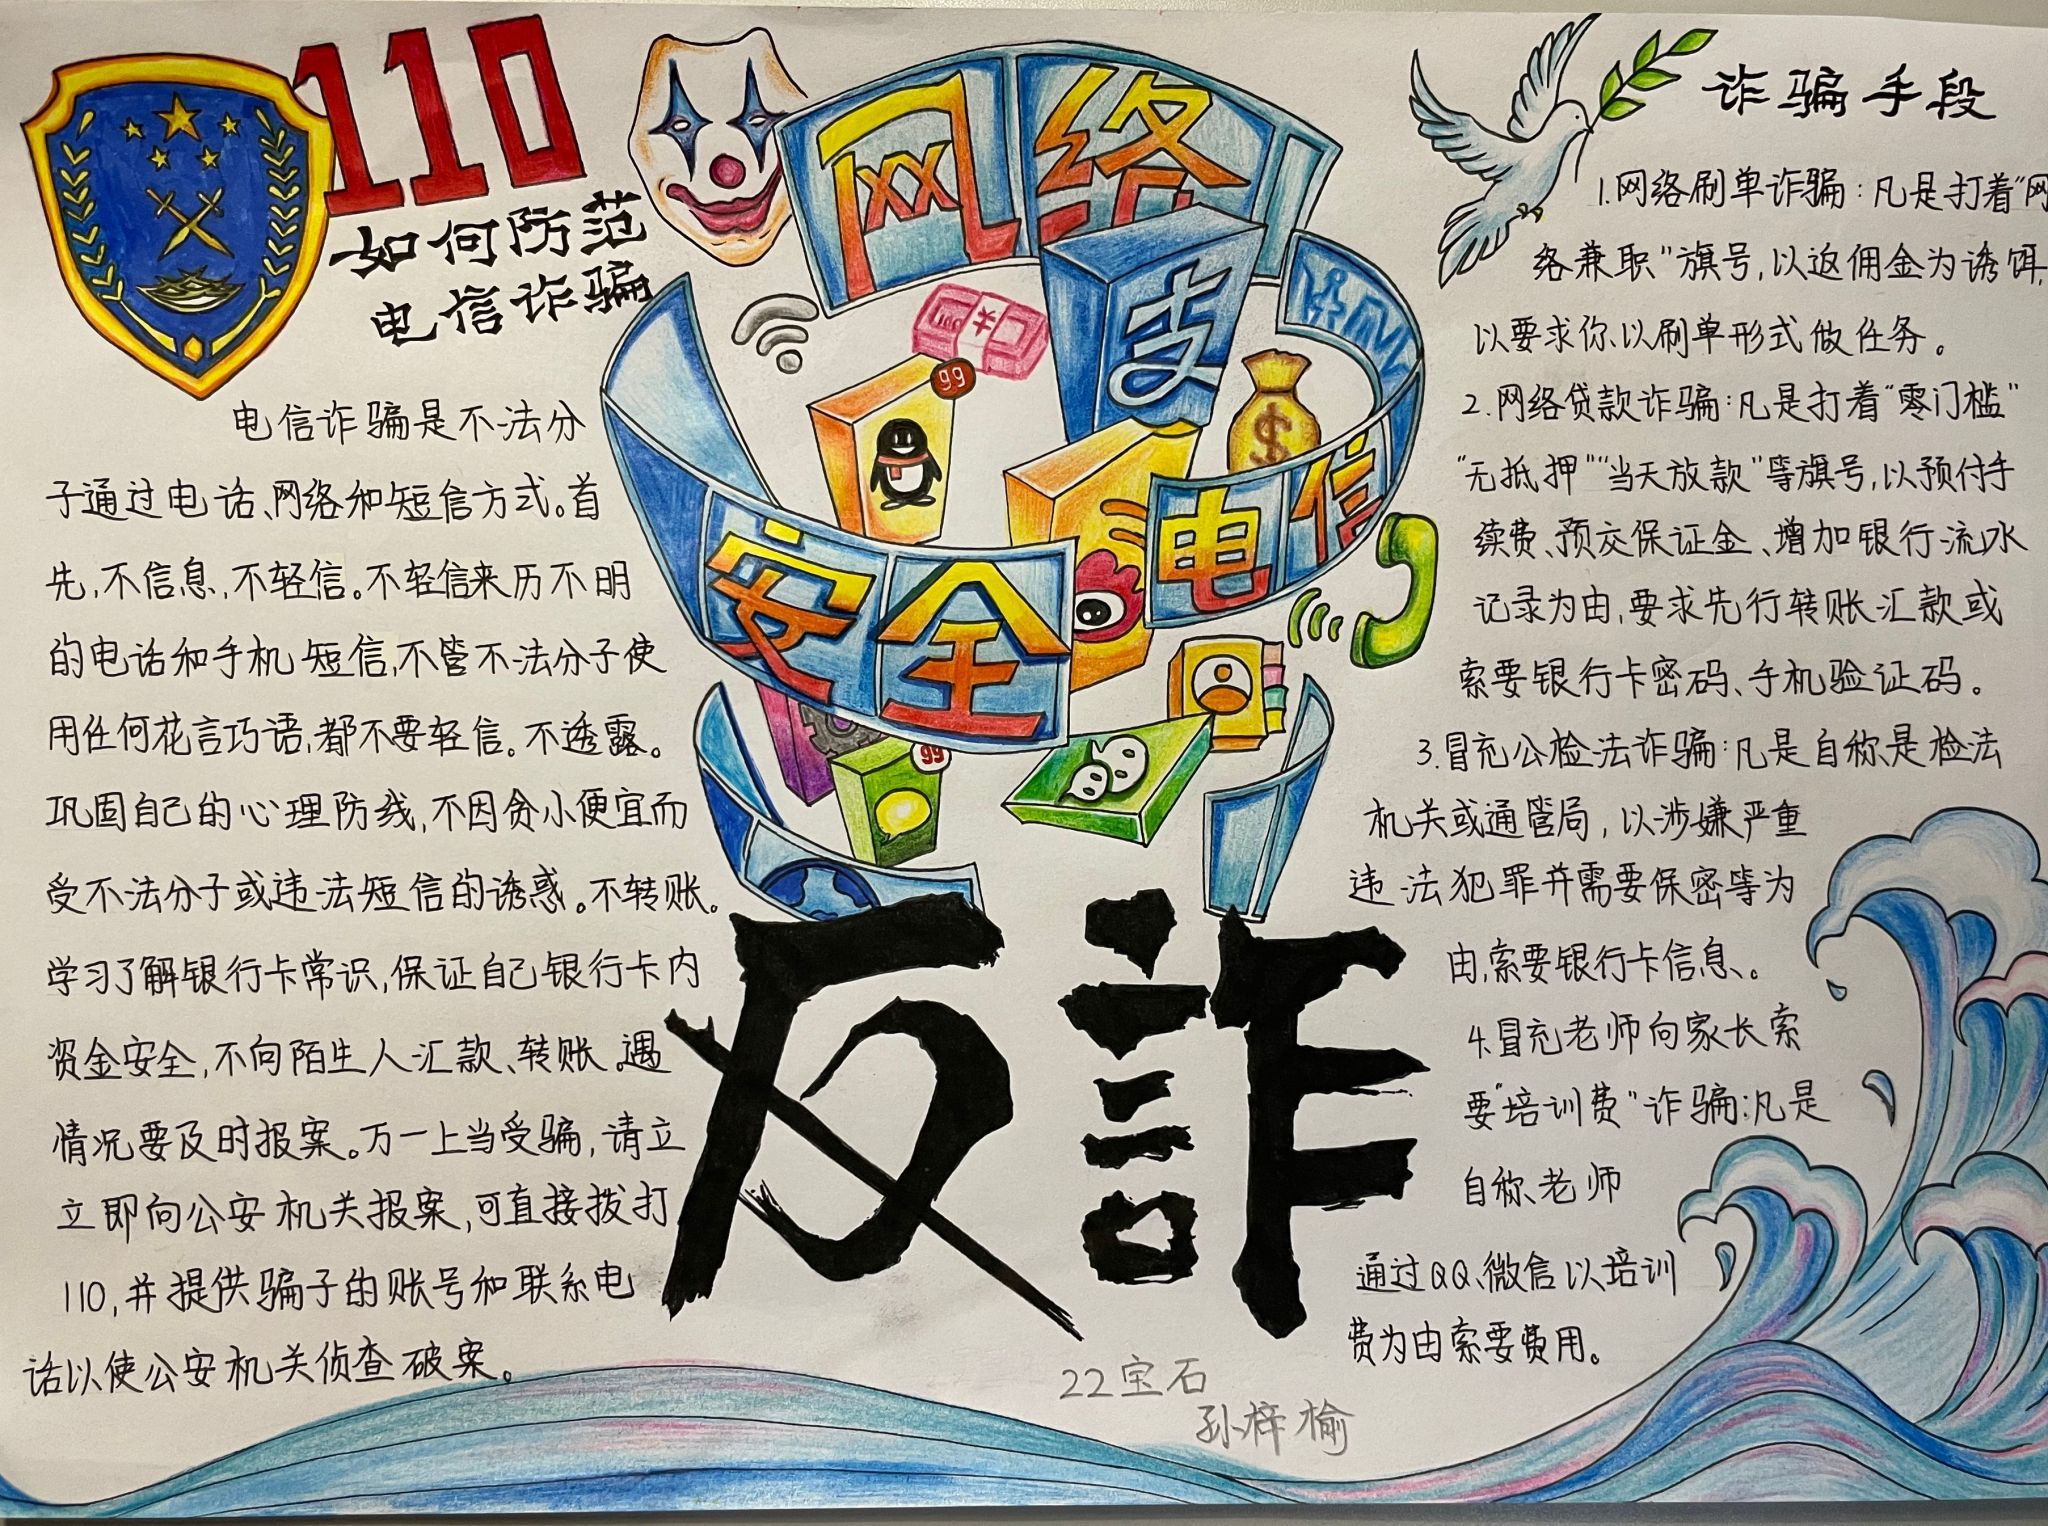 110
如何防范
电信诈骗
电信诈骗是不法分
子通过电话、网络和短信方式。首
先,不信息,不轻信。不轻信来历不明
的电话和手机短信,不管不法分子使
用任何花言巧语,都不要轻信。不透露。
巩固自己的心理防线,不因贪小便宜而
受不法分子或违法短信的诱惑。不转账。
学习了解银行卡常识,保证自己银行卡内
资金安全,不向陌生人汇款、转账。遇
情况要及时报案。万一上当受骗,请立
立即向公安机关报案,可直接拨打
110,并提供骗子的账号和联系电
话以使公安机关侦查破案。
网络
支
99
¥
$
电信
安全
99
反詐
22宝石
孙梓榆
诈骗手段
1.网络刷单诈骗:凡是打着“网
络兼职”旗号,以返佣金为诱饵,
以要求你以刷单形式做任务。
2.网络贷款诈骗:凡是打着“零门槛”
“无抵押”“当天放款”等旗号,以预付手
续费、预交保证金、增加银行流水
记录为由,要求先行转账汇款或
索要银行卡密码、手机验证码。
3.冒充公检法诈骗:凡是自称是检法
机关或通管局,以涉嫌严重
违法犯罪并需要保密等为
由,索要银行卡信息、。
4.冒充老师向家长索
要“培训费”诈骗:凡是
自称老师
通过QQ、微信以培训
费为由索要费用。